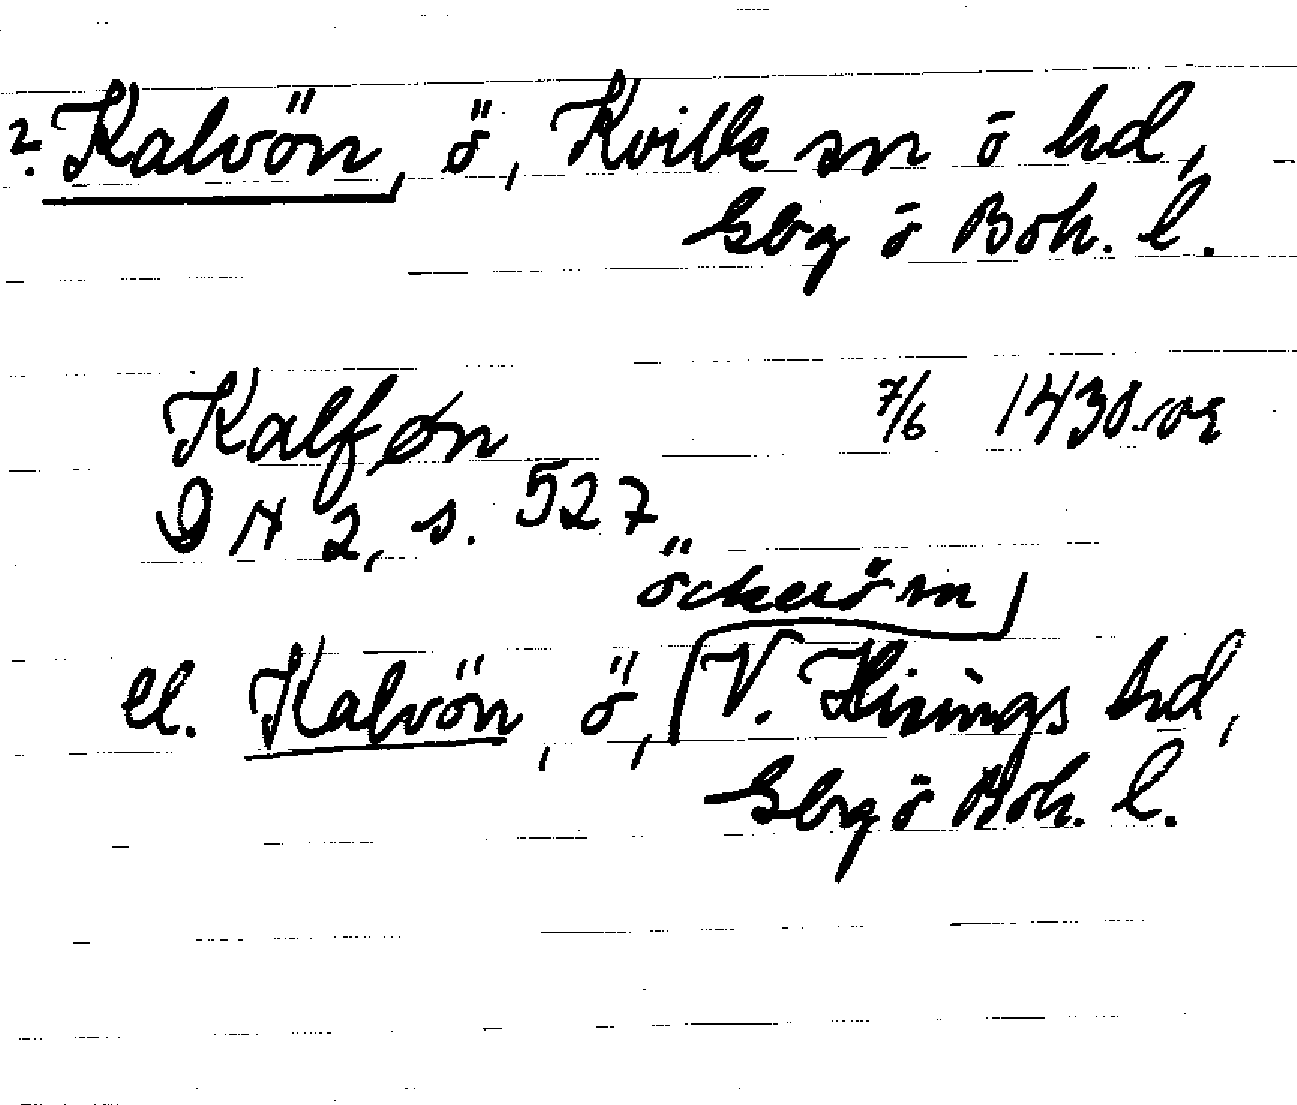 2. Kalvön, ö, Kville sn ō hd,
Gbg ō Boh. l.
Kalføn 7/6 1430 or
DN 2, s. 527
Öckerö sn
el. Kalvön, ö, V. Hisings hd,
Gbg ō Boh. l.